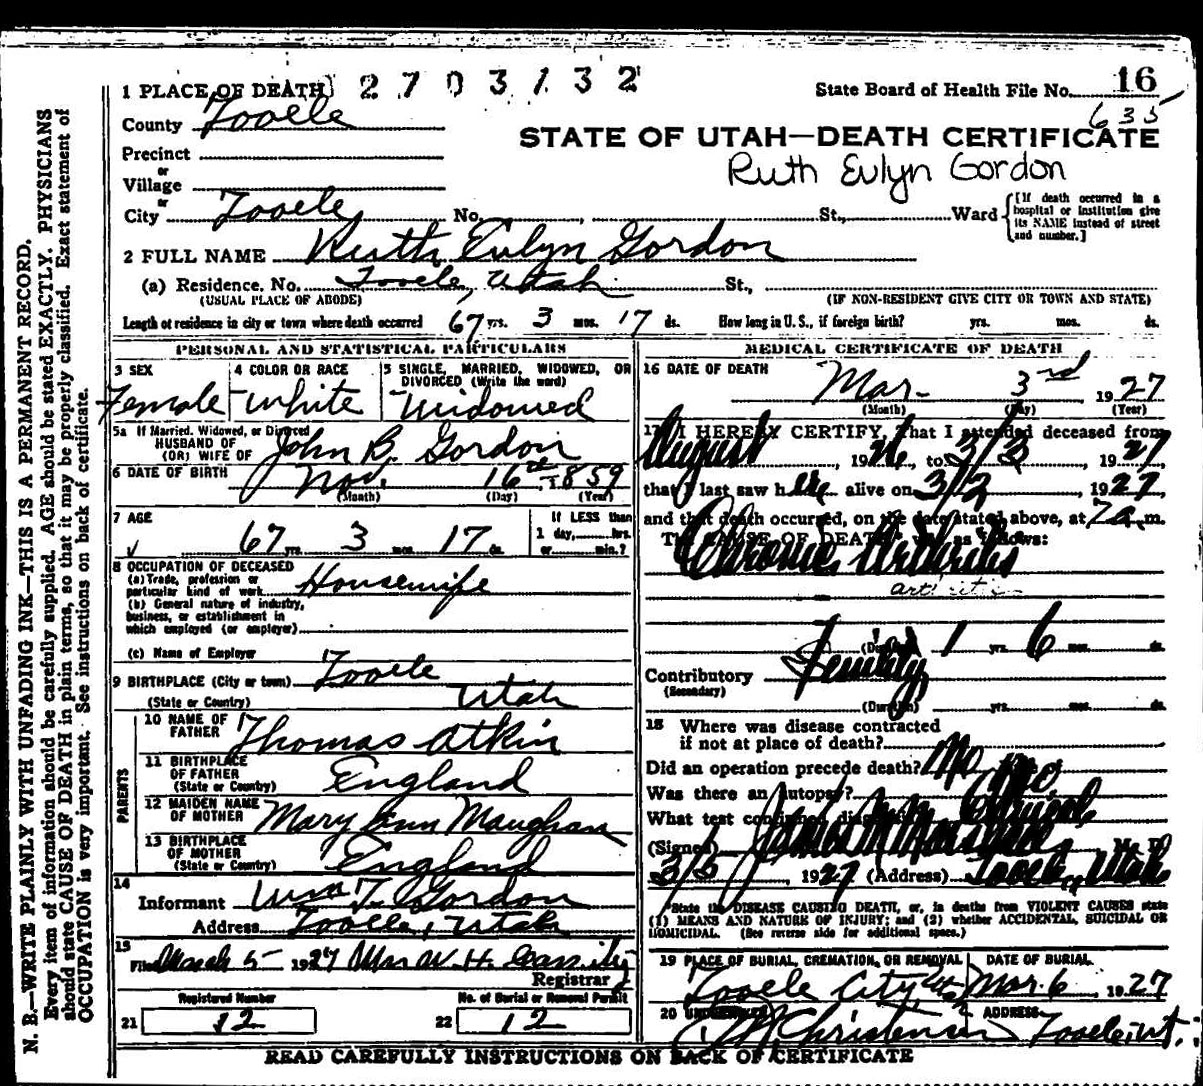 N. B.—WRITE PLAINLY WITH UNFADING INK—THIS IS A PERMANENT RECORD.
Every item of information should be carefully supplied. AGE should be stated EXACTLY. PHYSICIANS
should state CAUSE OF DEATH in plain terms, so that it may be properly classified. Exact statement of
OCCUPATION is very important. See instructions on back of certificate.
1 PLACE OF DEATH 2703132
State Board of Health File No. 16
635
County Tooele
STATE OF UTAH—DEATH CERTIFICATE
Precinct
or
Ruth Evlyn Gordon
Village
or
City Tooele No. St., Ward
[If death occurred in a
hospital or institution give
its NAME instead of street
and number.]
2 FULL NAME Ruth Evlyn Gordon
(a) Residence. No. Tooele, Utah St.,
(USUAL PLACE OF ABODE) (IF NON-RESIDENT GIVE CITY OR TOWN AND STATE)
Length of residence in city or town where death occurred 67 yrs. 3 mos. 17 ds. How long in U. S., if foreign birth? yrs. mos. ds.
PERSONAL AND STATISTICAL PARTICULARS
3 SEX 4 COLOR OR RACE 5 SINGLE, MARRIED, WIDOWED, OR
DIVORCED (Write the word)
Female White Widowed
5a If Married, Widowed, or Divorced
HUSBAND OF
(OR) WIFE OF John B. Gordon
6 DATE OF BIRTH Nov. 16th 1859
(Month) (Day) (Year)
7 AGE If LESS than
67 yrs. 3 mos. 17 ds. 1 day, hrs.
or min.?
8 OCCUPATION OF DECEASED
(a) Trade, profession or
particular kind of work Housewife
(b) General nature of industry,
business, or establishment in
which employed (or employer)
(c) Name of Employer
9 BIRTHPLACE (City or town) Tooele
(State or Country) Utah
PARENTS
10 NAME OF
FATHER Thomas Atkin
11 BIRTHPLACE
OF FATHER England
(State or Country)
12 MAIDEN NAME
OF MOTHER Mary Ann Maughan
13 BIRTHPLACE
OF MOTHER England
(State or Country)
14
Informant Wm T. Gordon
Address Tooele, Utah
15
Filed March 5 1927 W. H. Cassity
Registrar
Registered Number No. of Burial or Removal Permit
21 12 22 12
MEDICAL CERTIFICATE OF DEATH
16 DATE OF DEATH
Mar. 3rd 1927
(Month) (Day) (Year)
17 I HEREBY CERTIFY, that I attended deceased from
August, 1926, to 3/3, 1927
that I last saw her alive on 3/2, 1927
and that death occurred, on the date stated above, at 7 a.m.
THE CAUSE OF DEATH was as follows:
Chronic Arthritis
(Duration) 1 yrs. 6 mos. ds.
Contributory
(Secondary)
(Duration) yrs. mos. ds.
18 Where was disease contracted
if not at place of death?
Did an operation precede death? No
Was there an autopsy? No
What test confirmed diagnosis? Clinical
(Signed) James M. Marshall, M. D.
3/5, 1927 (Address) Tooele, Utah
*State the DISEASE CAUSING DEATH, or, in deaths from VIOLENT CAUSES state
(1) MEANS AND NATURE OF INJURY; and (2) whether ACCIDENTAL, SUICIDAL OR
HOMICIDAL. (See reverse side for additional space.)
19 PLACE OF BURIAL, CREMATION, OR REMOVAL DATE OF BURIAL
Tooele City Mar. 6, 1927
20 UNDERTAKER ADDRESS
Christensen Tooele, Ut.
READ CAREFULLY INSTRUCTIONS ON BACK OF CERTIFICATE